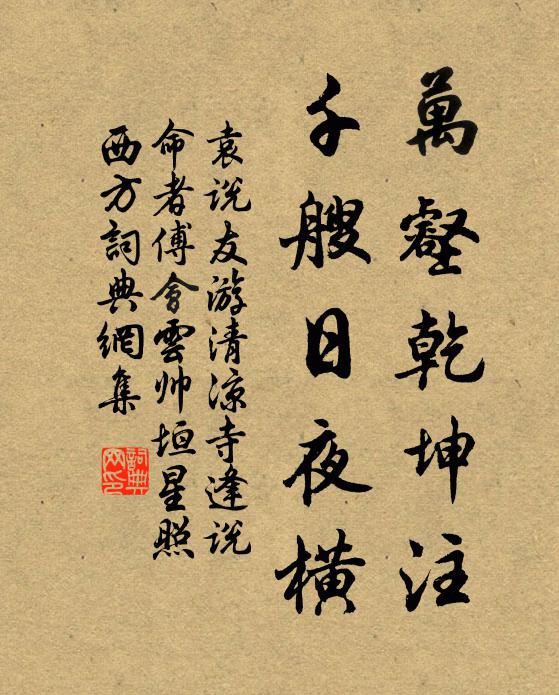 萬壑乾坤注
千艘日夜橫
袁说友游清凉寺逢说
命者傅會雲帅垣星照
西方詞典網集
詞典
网印